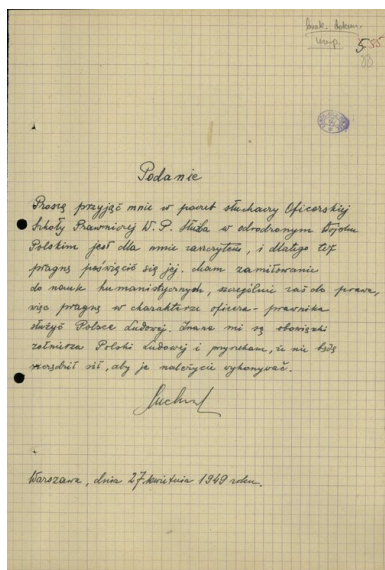 555
Podanie
Proszę przyjąć mnie w poczet słuchaczy Oficerskiej
Szkoły Prawniczej W. P. Służba w odrodzonym Wojsku
Polskim jest dla mnie zaszczytem, i dlatego też
pragnę poświęcić się jej. Mam zamiłowanie
do nauk humanistycznych, szczególnie zaś do prawa,
więc pragnę w charakterze oficera-prawnika
służyć Polsce Ludowej. Znane mi są obowiązki
żołnierza Polski Ludowej i przyrzekam, że nie będę
szczędził sił, aby je należycie wykonywać.
Warszawa, dnia 27 kwietnia 1949 roku.